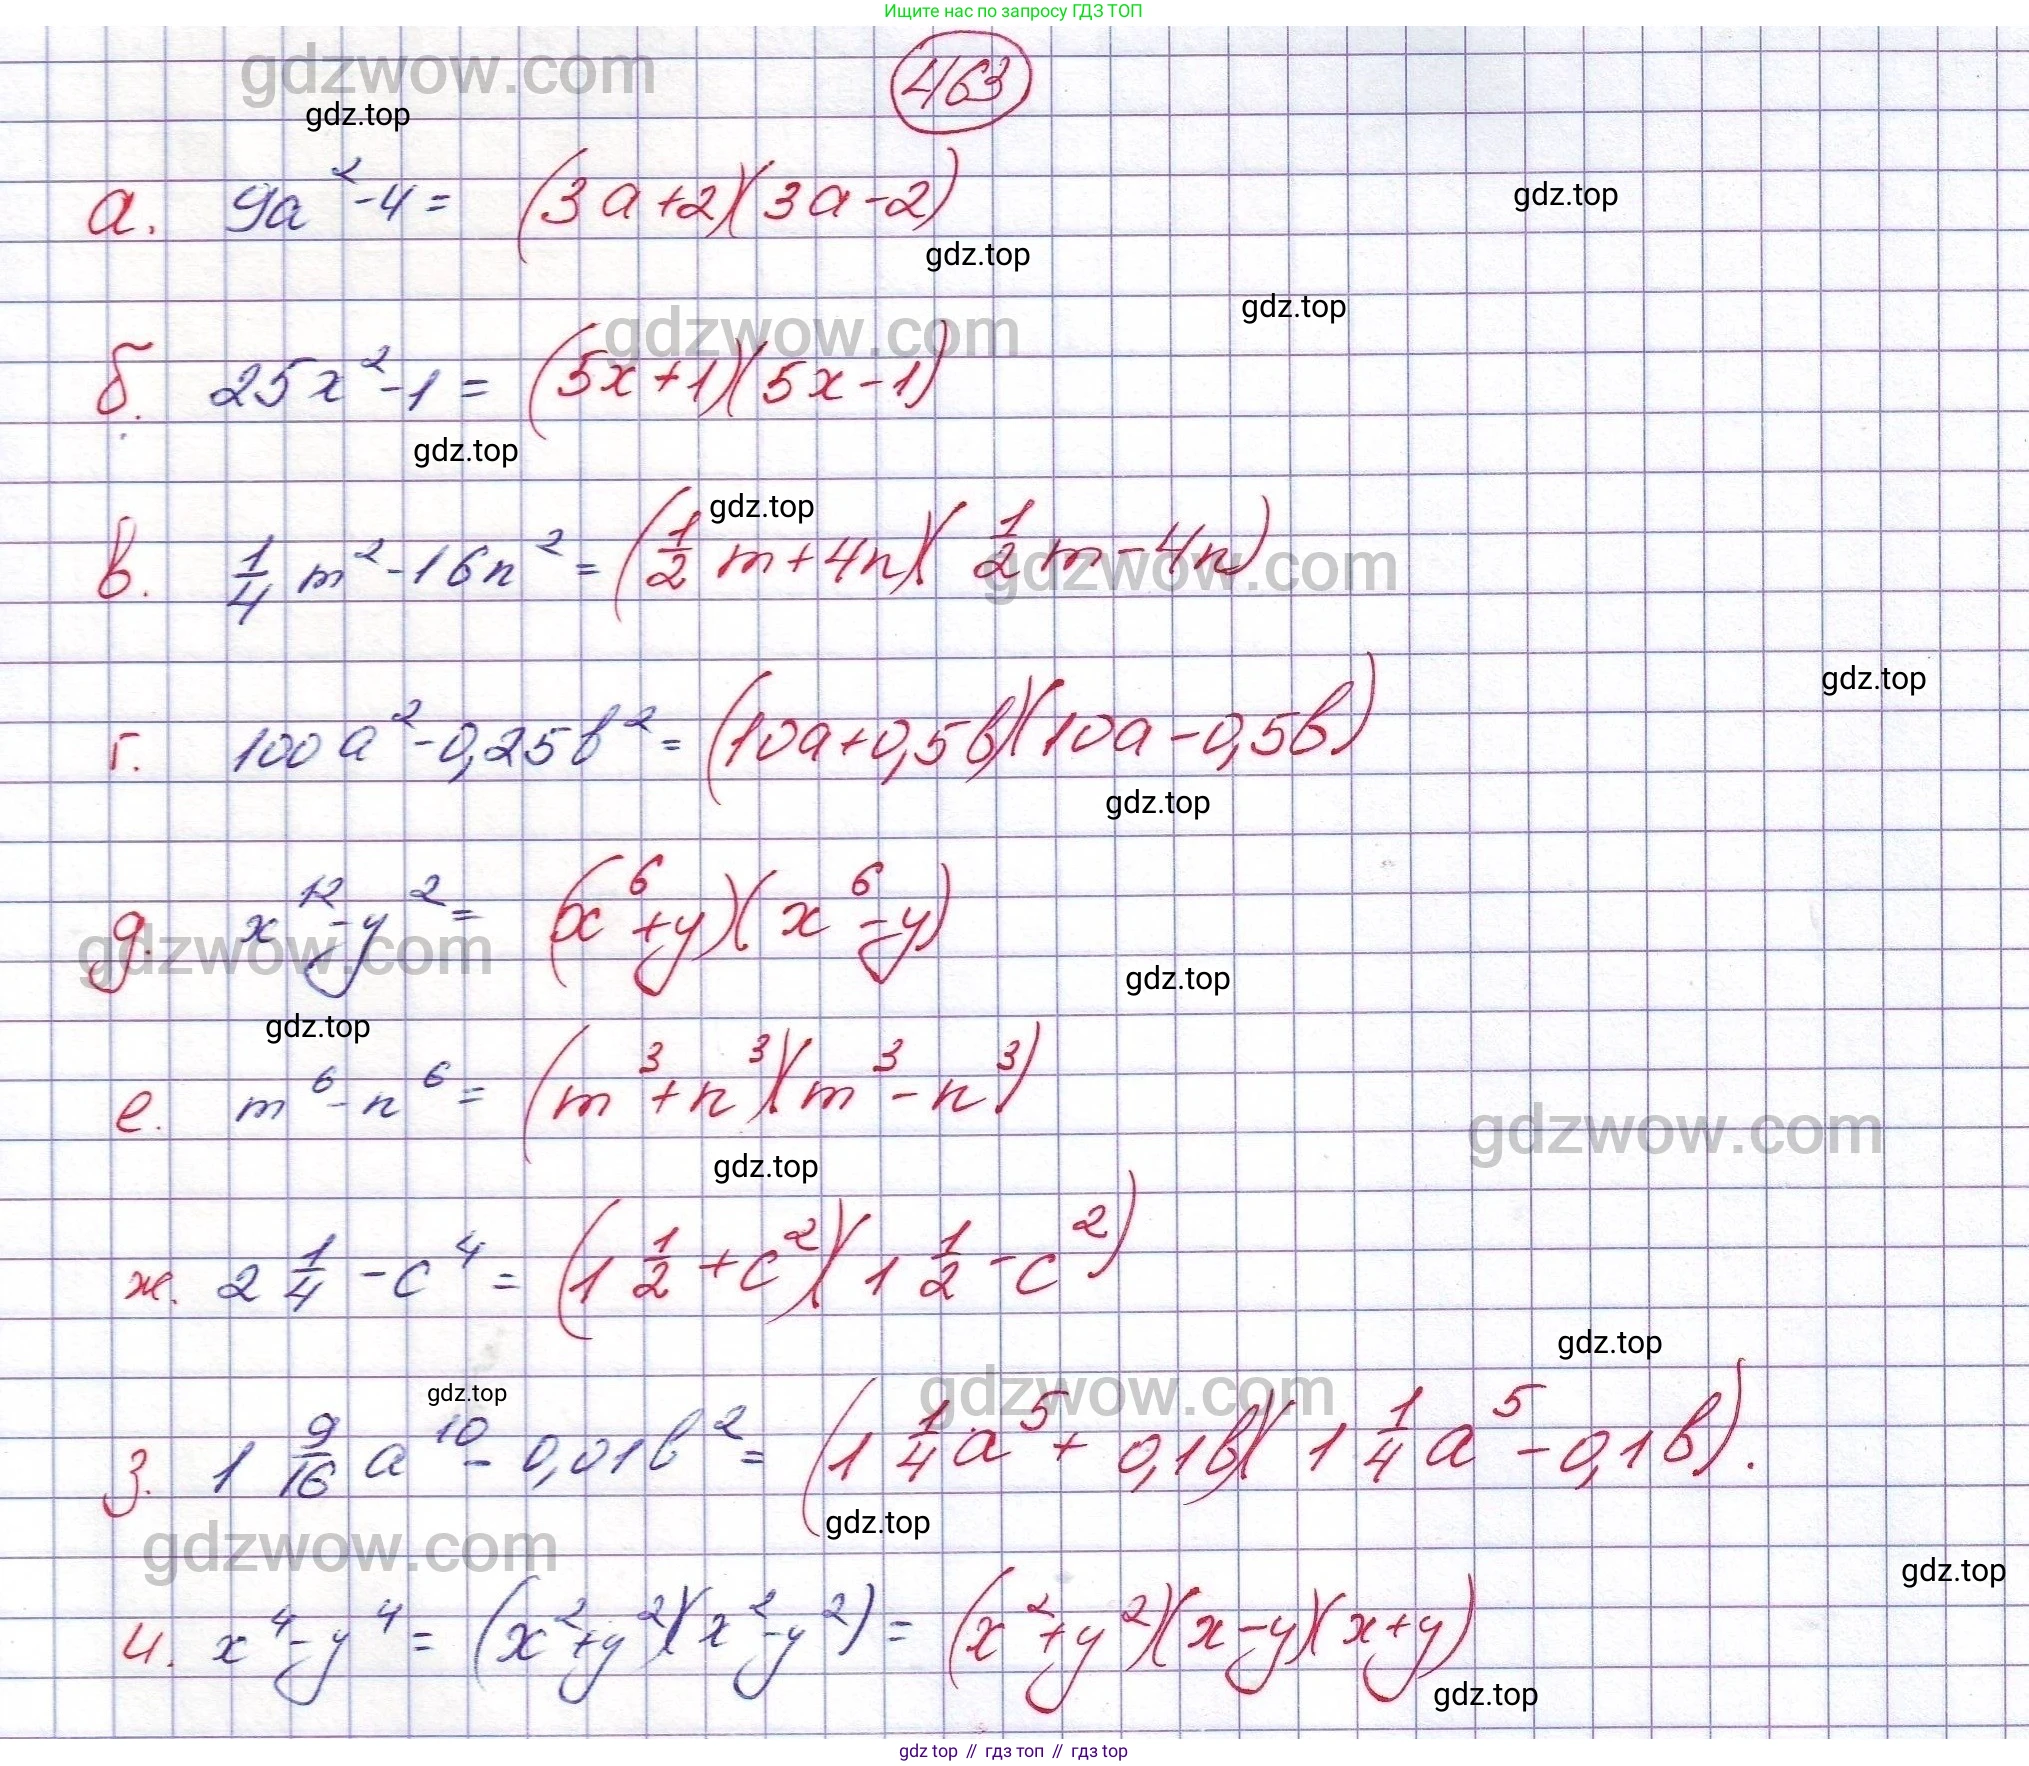 Ищите нас по запросу ГДЗ ТОП
463
gdzwow.com
gdz.top
а. 9a² - 4 = (3a + 2)(3a - 2)
gdz.top
gdz.top
gdz.top
gdzwow.com
б. 25x² - 1 = (5x + 1)(5x - 1)
gdz.top
gdz.top
в. 1/4 m² - 16n² = (1/2 m + 4n)(1/2 m - 4n)
gdzwow.com
gdz.top
г. 100a² - 0,25b² = (10a + 0,5b)(10a - 0,5b)
gdz.top
д. x¹² - y² = (x⁶ + y)(x⁶ - y)
gdzwow.com
gdz.top
gdz.top
е. m⁶ - n⁶ = (m³ + n³)(m³ - n³)
gdzwow.com
gdz.top
ж. 2 1/4 - c⁴ = (1 1/2 + c²)(1 1/2 - c²)
gdz.top
gdz.top
gdzwow.com
з. 1 9/16 a¹⁰ - 0,01b² = (1 1/4 a⁵ + 0,1b)(1 1/4 a⁵ - 0,1b).
gdz.top
gdzwow.com
gdz.top
и. x⁴ - y⁴ = (x² + y²)(x² - y²) = (x² + y²)(x - y)(x + y)
gdz.top
gdz top // гдз топ // гдз top